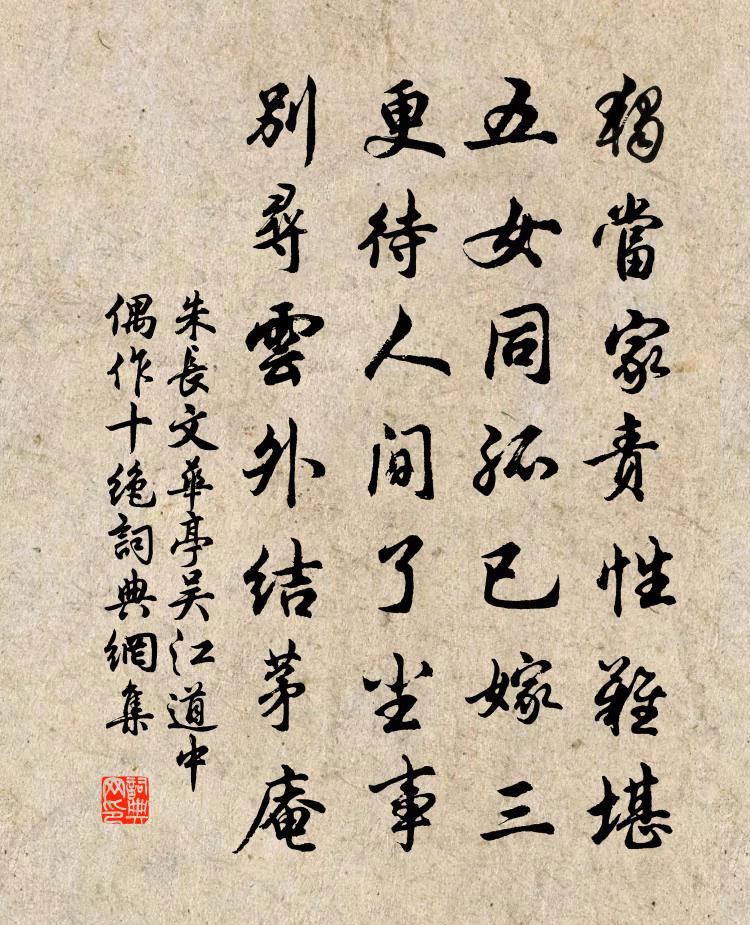 獨當家責性難堪
五女同孤已嫁三
更待人间了尘事
別尋雲外结茅庵
朱長文華亭吴江道中
偶作十绝詞典網集
詞典
网印